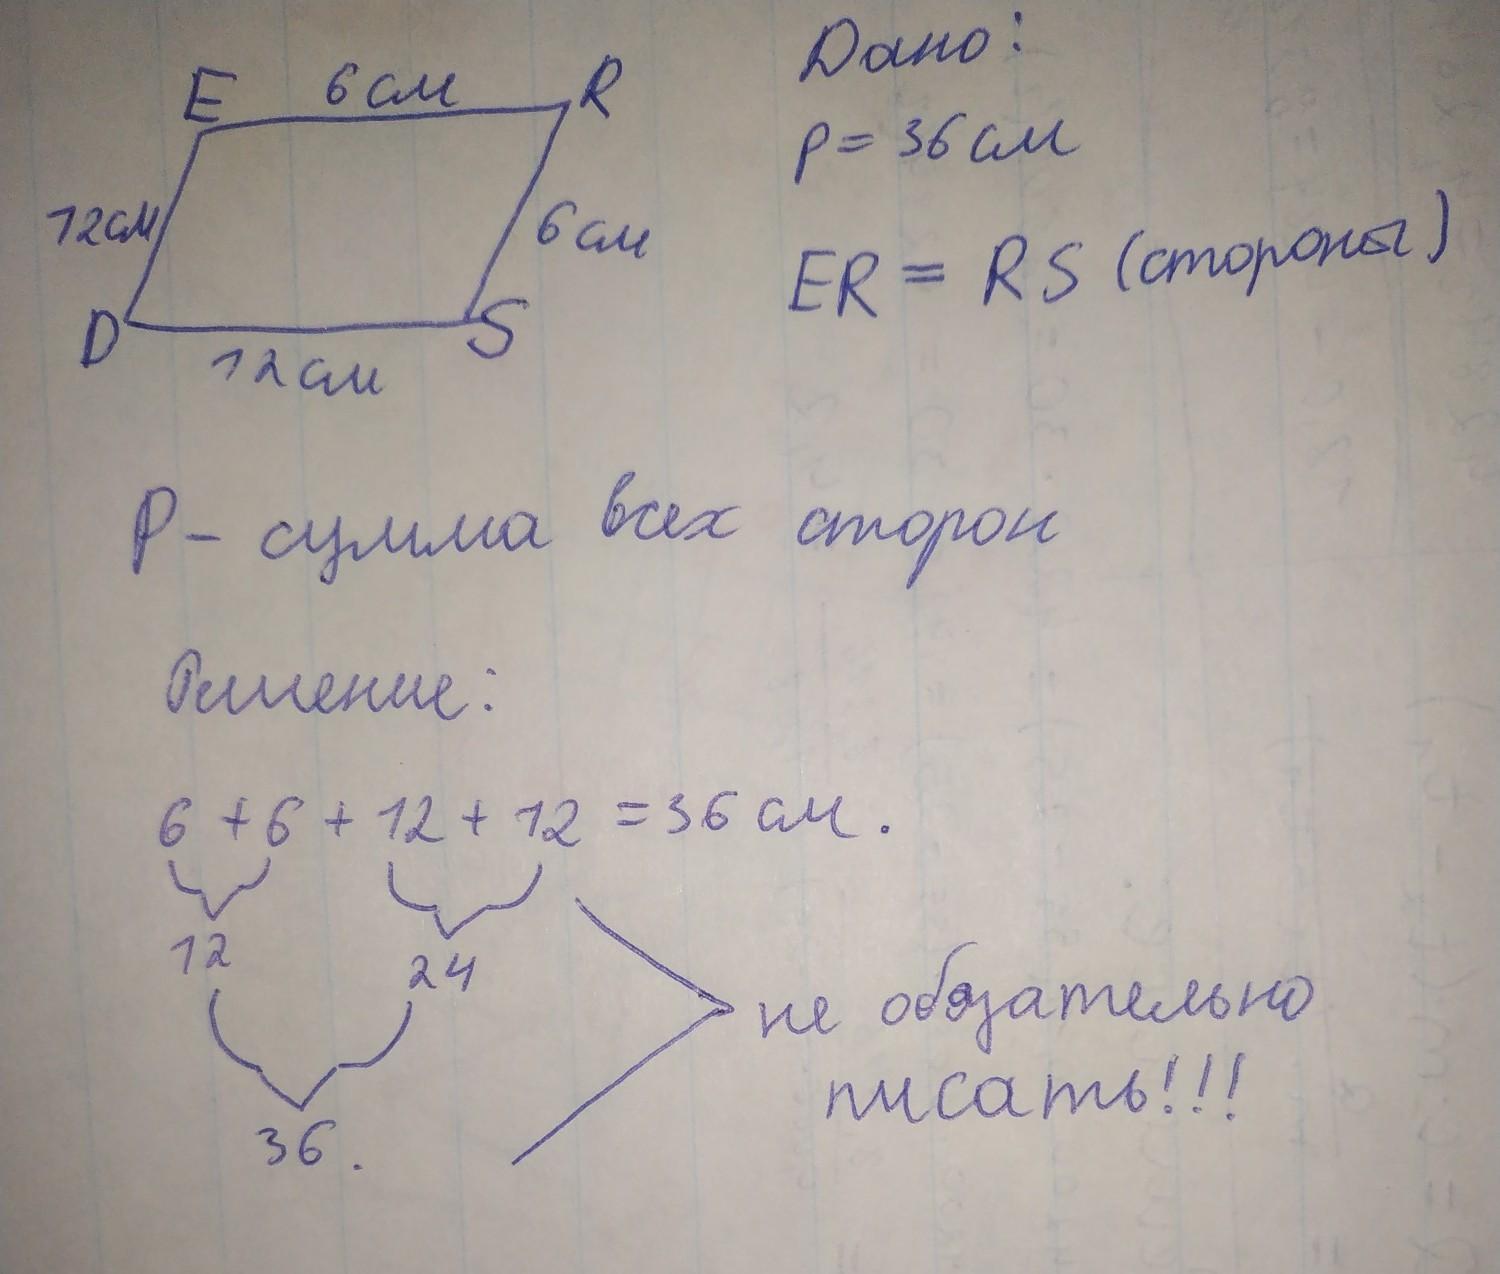 Дано:
E 6 см R
p = 36 см
12 см
6 см
ER = RS (стороны)
D
S
12 см
P - сумма всех сторон
Решение:
6 + 6 + 12 + 12 = 36 см.
12
24
не обязательно
писать!!!
36.